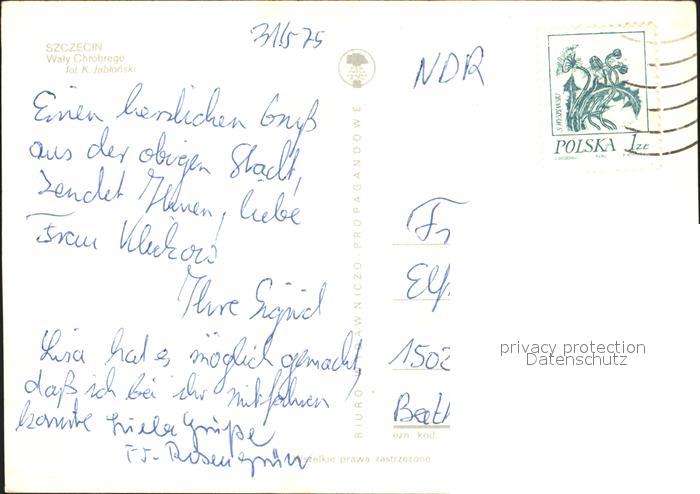 31/5 75
SZCZECIN
Wały Chrobrego
fot. K. Jabłoński
Einen herzlichen Gruß
aus der obigen Stadt,
sendet Ihnen, liebe
Frau
Ihre Sigrid
Lisa hat es möglich gemacht,
daß ich bei ihr mitfahren
konnte viele Grüße
BIURO WYDAWNICZO-PROPAGANDOWE
NDR
S. WYSPIAŃSKI
POLSKA 1 ZŁ
Fr
Elf
1502
ozn. kod.
Wszelkie prawa zastrzeżone
privacy protection
Datenschutz